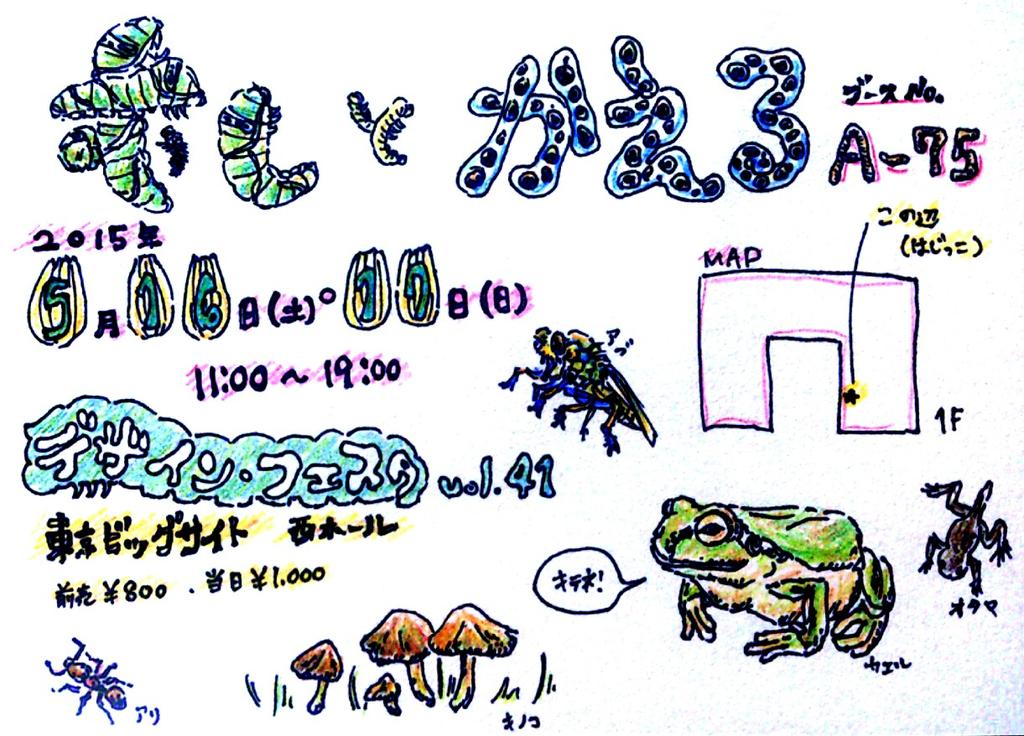 むしとかえる
ブースNo.
A-75
2015年
5月16日(土)。17日(日)
11:00~19:00
この辺
(はじっこ)
MAP
1F
アブ
デザイン・フェスタ vol.41
東京ビッグサイト 西ホール
前売¥800.当日¥1.000
キテネ!
オタマ
カエル
アリ
キノコ